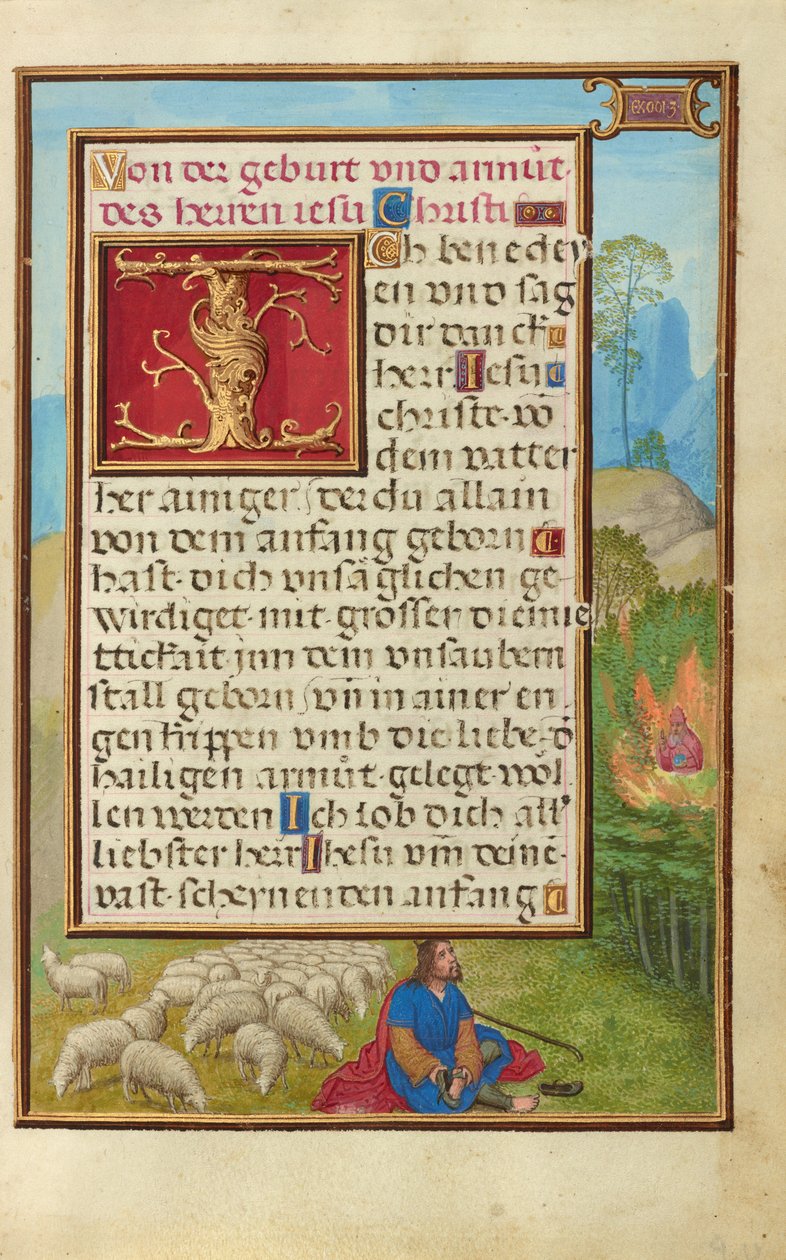 EXODI·3·
Von der geburt vnd armůt·
des herren iesu Christi
Ich benedey
en vnd sag
dir danck
herr Iesu
christe· vō
dem vatter
her ainiger, der du allain
von dem anfang geborn
hast· dich vnsäglichen ge-
wirdiget· mit· grosser diemie
ttickait· jnn dem vnsaubern
stall geborn, vn̄ in ainer en-
gen krippen vmb die liebe· d̄
hailigen armůt· gelegt· wöl
len werden Ich lob dich all'
liebster herr Ihesu vm̄ deinē·
vast· scheynenden anfang